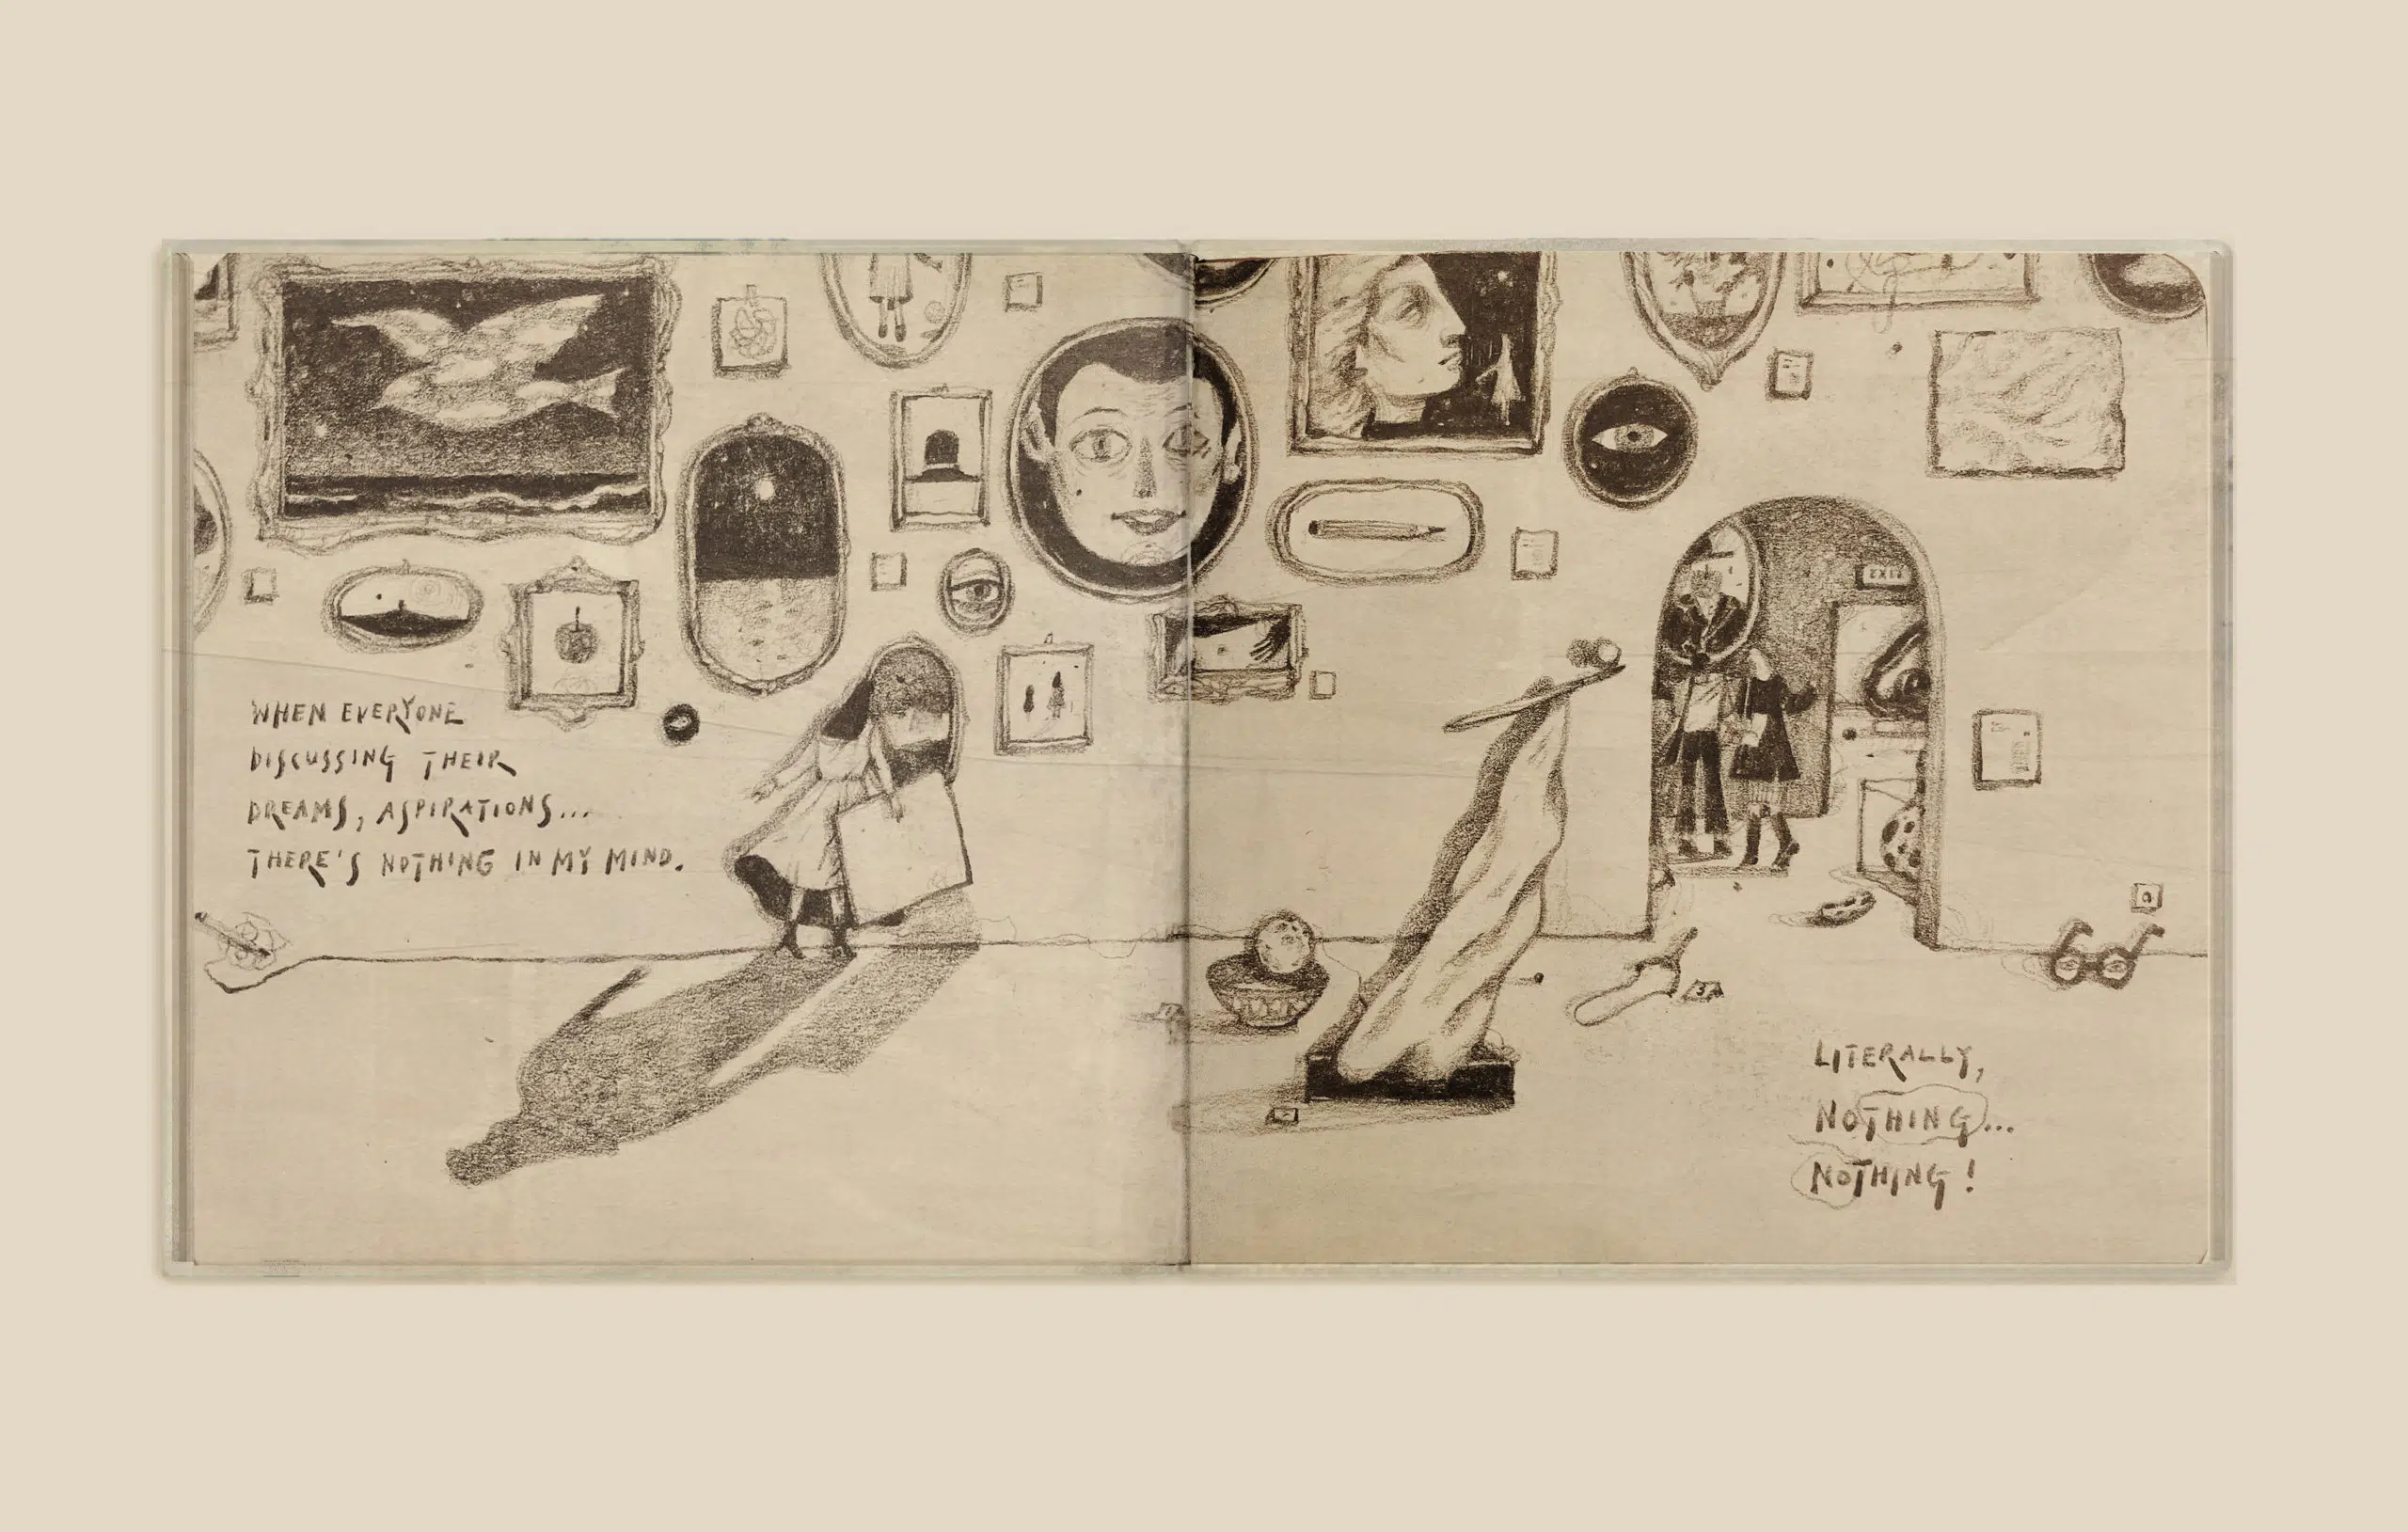 WHEN EVERYONE
DISCUSSING THEIR
DREAMS, ASPIRATIONS...
THERE'S NOTHING IN MY MIND.
EXIT
3
LITERALLY,
NOTHING...
NOTHING!